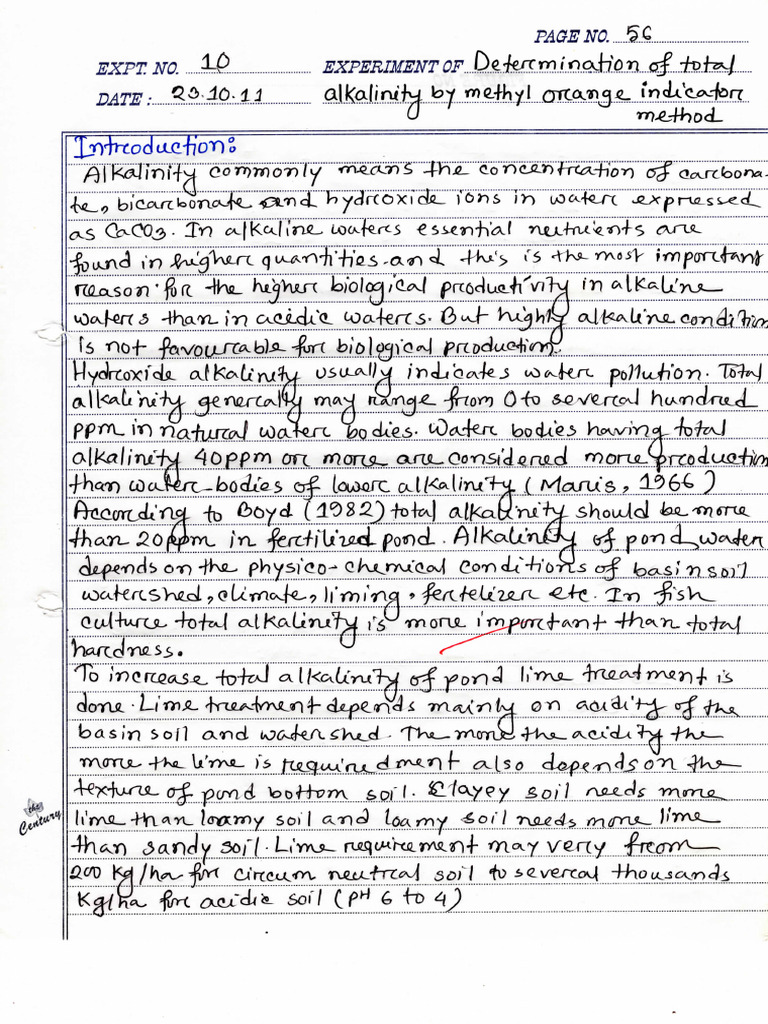 PAGE NO. 56
EXPT. NO. 10 EXPERIMENT OF Determination of total
DATE : 20.10.11 alkalinity by methyl orange indicator
method
Introduction:
Alkalinity commonly means the concentration of carbona-
te, bicarbonate and hydroxide ions in water expressed
as CaCO3. In alkaline waters essential neutrients are
found in higher quantities and this is the most important
reason for the higher biological productivity in alkaline
waters than in acidic waters. But highly alkaline condition
is not favourable for biological production.
Hydroxide alkalinity usually indicates water pollution. Total
alkalinity generally may range from 0 to several hundred
ppm in natural water bodies. Water bodies having total
alkalinity 40ppm or more are considered more production
than water-bodies of lower alkalinity (Maris, 1966)
According to Boyd (1982) total alkalinity should be more
than 20ppm in fertilized pond. Alkalinity of pond water
depends on the physico-chemical conditions of basin soil
watershed, climate, liming, fertelizer etc. In fish
culture total alkalinity is more important than total
hardness.
To increase total alkalinity of pond lime treatment is
done. Lime treatment depends mainly on acidity of the
basin soil and watershed. The more the acidity the
more the lime is requiredment also depends on the
texture of pond bottom soil. Clayey soil needs more
lime than loamy soil and loamy soil needs more lime
than sandy soil. Lime requirement may very from
200 kg/ha for circum neutral soil to several thousands
Kg/ha for acidic soil (PH 6 to 4)
the
Century